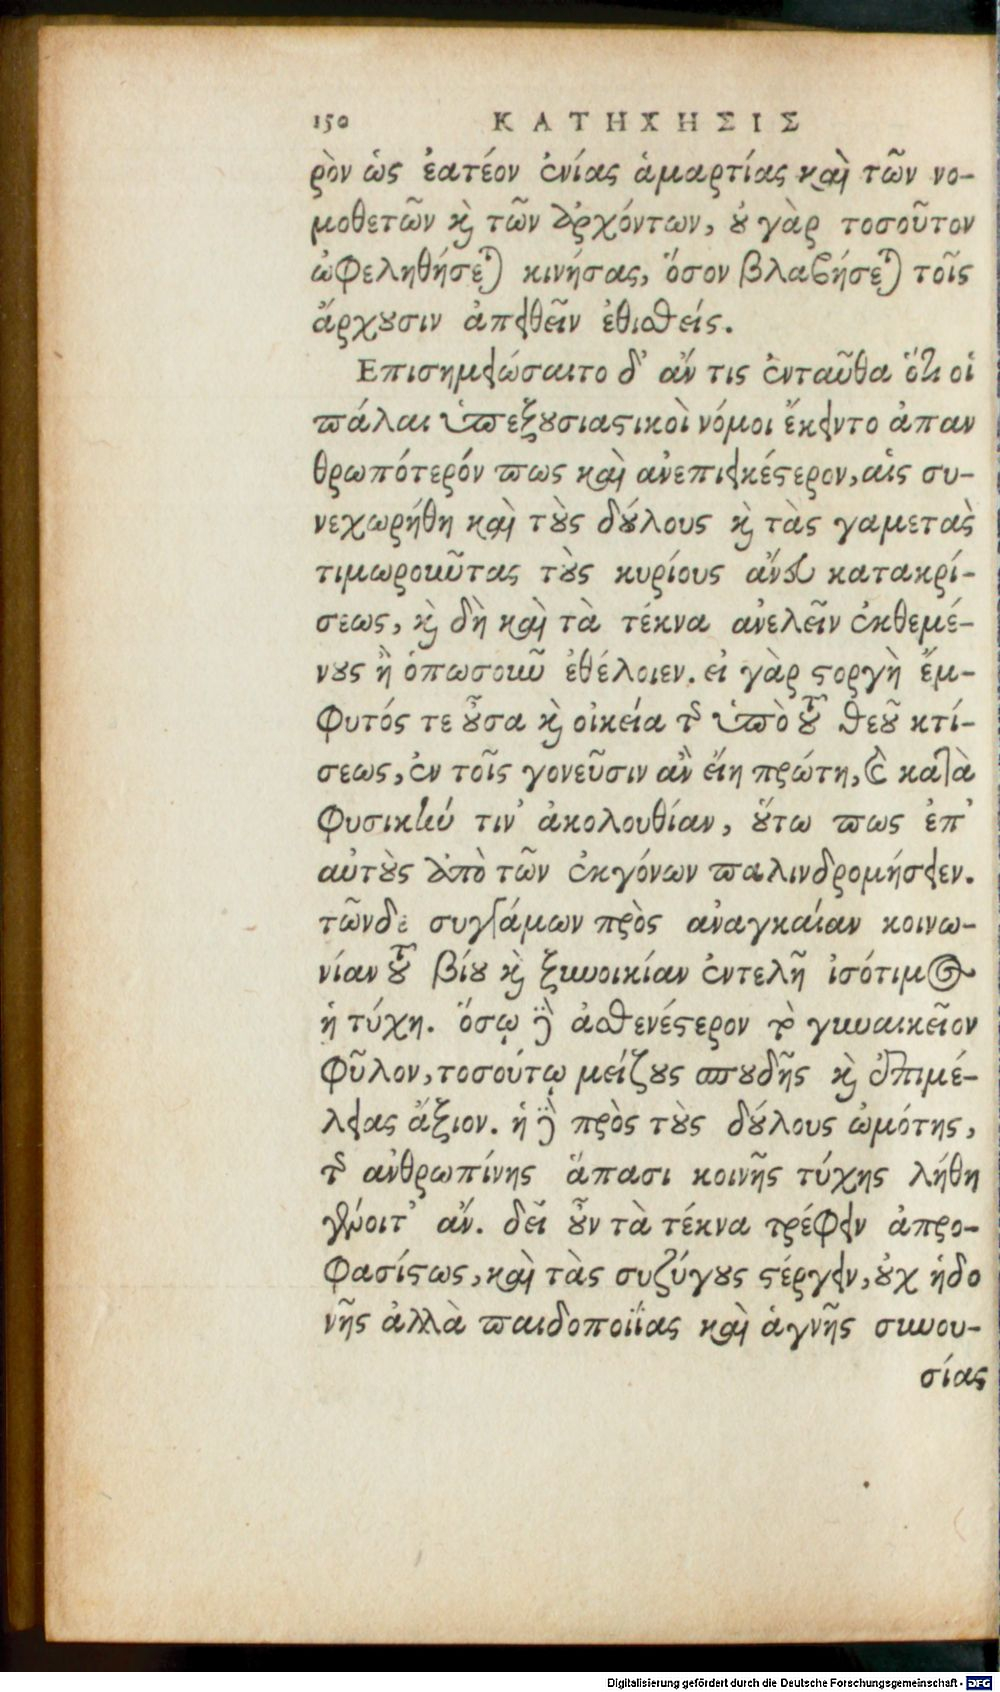 150 ΚΑΤΗΧΗΣΙΣ
ρὸν ὡς ἐατέον ἐνίας ἁμαρτίας καὶ τῶν νο-
μοθετῶν καὶ τῶν ἀρχόντων, οὐ γὰρ τοσοῦτον
ὠφεληθήσεται κινήσας, ὅσον βλαβήσεται τοῖς
ἄρχουσιν ἀπειθεῖν ἐθισθείς.
Επισημειώσαιτο δ' ἄν τις ἐνταῦθα ὅτι οἱ
πάλαι ὑπεξουσιαστικοὶ νόμοι ἔκειντο ἀπαν
θρωπότερόν πως καὶ ἀνεπιεικέστερον, αἷς συ-
νεχωρήθη καὶ τοὺς δούλους καὶ τὰς γαμετὰς
τιμωροῦντας τοὺς κυρίους ἄνευ κατακρί-
σεως, καὶ δὴ καὶ τὰ τέκνα ἀνελεῖν ἐκθεμέ-
νους ἢ ὁπωσοῦν ἐθέλοιεν. εἰ γὰρ στοργὴ ἔμ-
φυτός τε οὖσα καὶ οἰκεία τῆς ὑπὸ τοῦ θεοῦ κτί-
σεως, ἐν τοῖς γονεῦσιν ἂν εἴη πρώτη, καὶ κατὰ
φυσικήν τιν' ἀκολουθίαν, οὕτω πως ἐπ'
αὐτοὺς ἀπὸ τῶν ἐκγόνων παλινδρομήσειεν.
τῶνδε συγγάμων πρὸς ἀναγκαίαν κοινω-
νίαν τοῦ βίου καὶ ξυνοικίαν ἐντελῆ ἰσότιμος
ἡ τύχη. ὅσῳ δὲ ἀσθενέστερον τὸ γυναικεῖον
φῦλον, τοσούτῳ μείζους σπουδῆς καὶ ἐπιμέ-
λειας ἄξιον. ἡ δὲ πρὸς τοὺς δούλους ὠμότης,
τῆς ἀνθρωπίνης ἅπασι κοινῆς τύχης λήθη
γένοιτ' ἄν. δεῖ οὖν τὰ τέκνα τρέφειν ἀπρο-
φασίστως, καὶ τὰς συζύγους στέργειν, οὐχ ἡδο
νῆς ἀλλὰ παιδοποιΐας καὶ ἁγνῆς συνου-
σίας
Digitalisierung gefördert durch die Deutsche Forschungsgemeinschaft - DFG